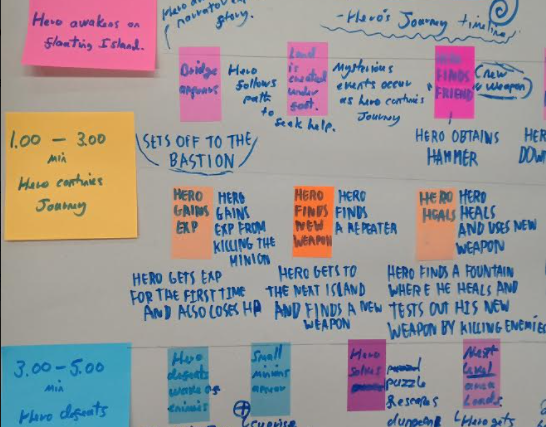 Hero awakens on
floating Island.
narrator
story.
- Hero's Journey timeline
Bridge
appears
Hero
follows
path
to
seek help.
Land
is
created
under
foot.
Mysterious
events occur
as hero contines
Journey
HERO
FINDS
FRIEND
(new
weapon)
1.00 - 3.00
min
Hero contines
Journey
SETS OFF TO THE
BASTION
HERO OBTAINS
HAMMER
HER
DOW
HERO
GAINS
EXP
HERO
GAINS
EXP FROM
KILLING THE
MINION
HERO
FINDS
NEW
WEAPON
HERO
FINDS
A REPEATER
HERO
HEALS
HERO
HEALS
AND USES NEW
WEAPON
HERO GETS EXP
FOR THE FIRST TIME
AND ALSO LOSES HP
HERO GETS TO
THE NEXT ISLAND
AND FINDS A NEW
WEAPON
HERO FINDS A FOUNTAIN
WHERE HE HEALS AND
TESTS OUT HIS NEW
WEAPON BY KILLING ENEMIES
3.00 - 5.00
min
Hero defeats
Hero
defeats
wave of
Small
minions
appear
Hero
solves
puzzle
&
dungeon
Next
level
area
Loads
Hero gets